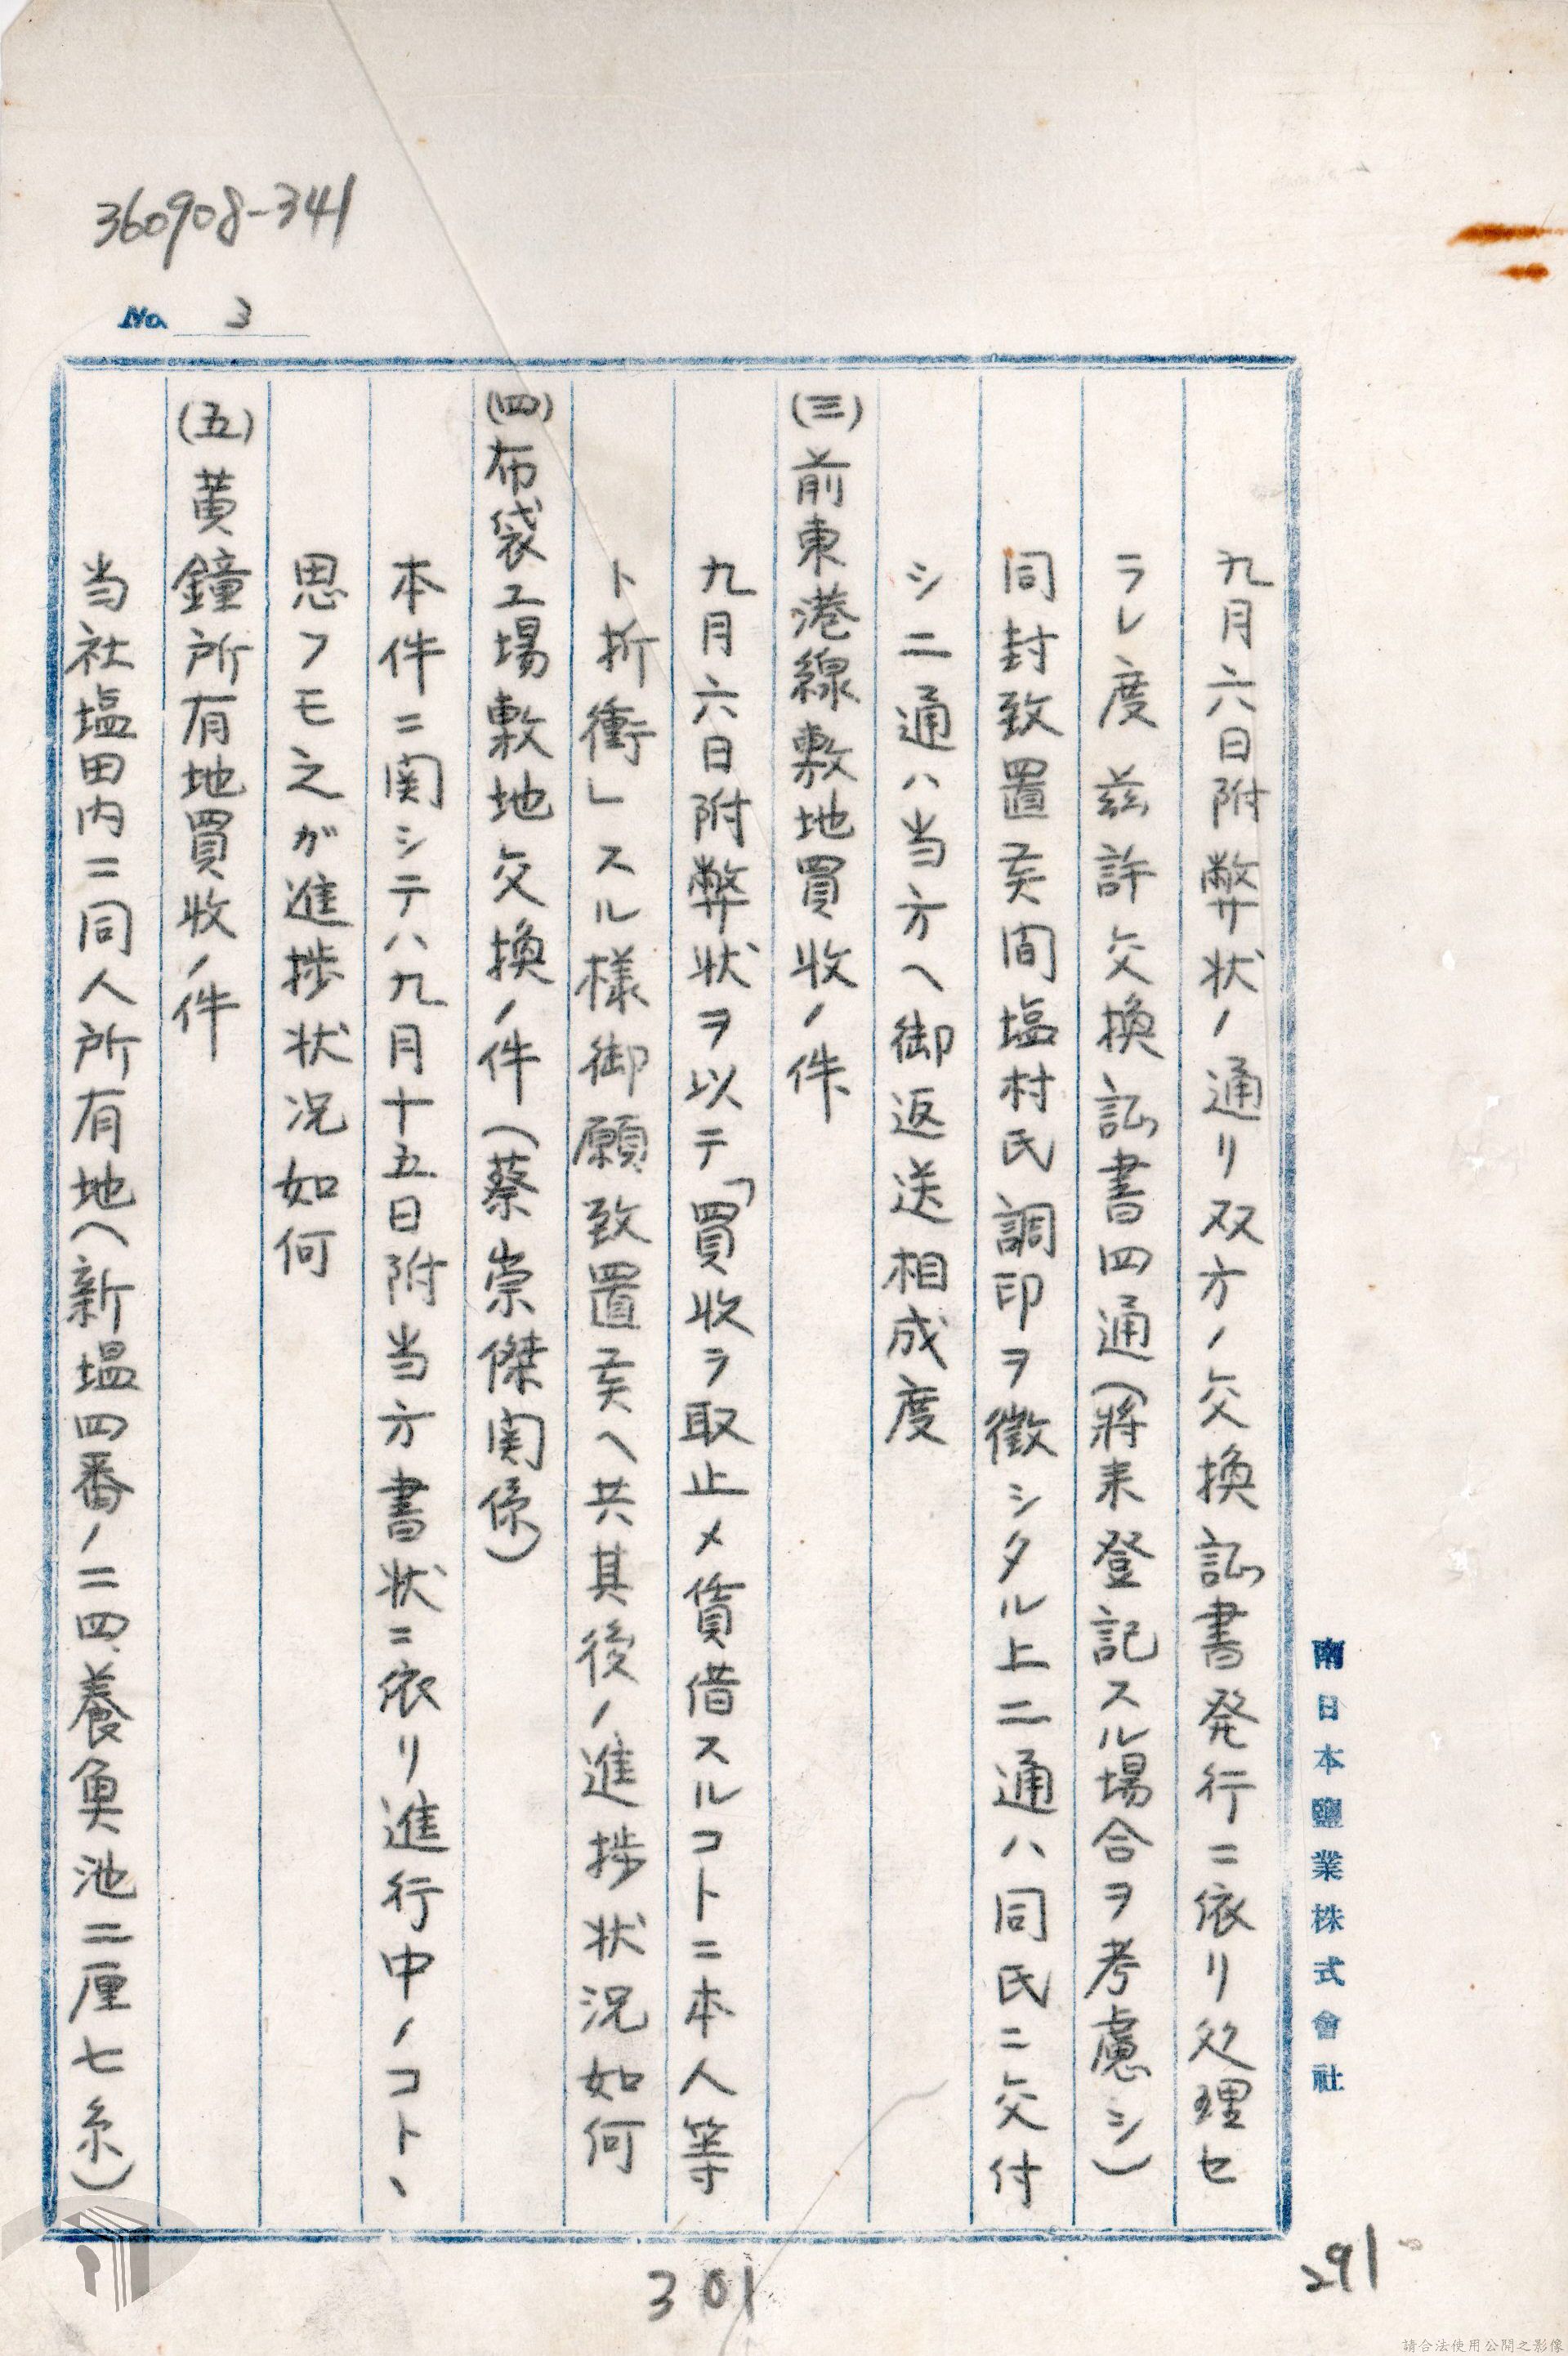 360908-341
No. 3
南日本鹽業株式會社
九月六日附弊状ノ通リ双方ノ交換証書発行ニ依リ処理セ
ラレ度茲許交換証書四通(將来登記スル場合ヲ考慮シ)
同封致置候間塩村氏調印ヲ徴シタル上二通ハ同氏ニ交付
シ二通ハ当方ヘ御返送相成度
(三)前東港線敷地買收ノ件
九月六日附弊状ヲ以テ「買收ヲ取止メ賃借スルコトニ本人等
ト折衝」スル様御願致置候ヘ共其後ノ進捗状况如何
(四)布袋工場敷地交換ノ件(蔡崇傑関係)
本件ニ関シテハ九月十五日附当方書状ニ依リ進行中ノコトヽ
思フモ之ガ進捗状况如何
(五)黄鐘所有地買收ノ件
当社塩田内ニ同人所有地(新塭四番ノ二四、養魚池二厘七糸)
301
291
請合法使用公開之影像